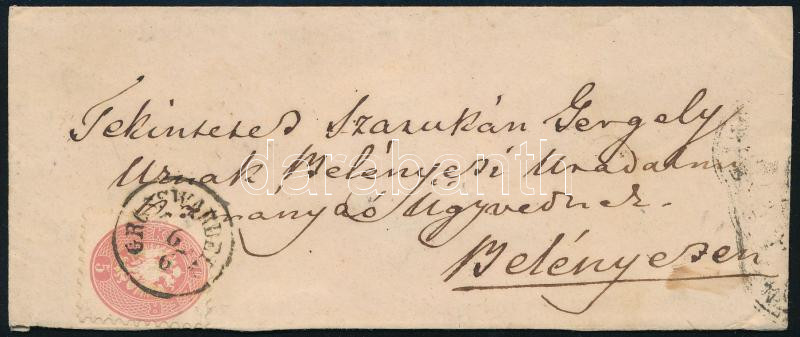 Tekintetes Szarukán Gergely
Urnak Belényesi Uradalmi
Ügyvednek.
Belényesen
GROSSWARDEIN
6
6
5
KR
darabanth